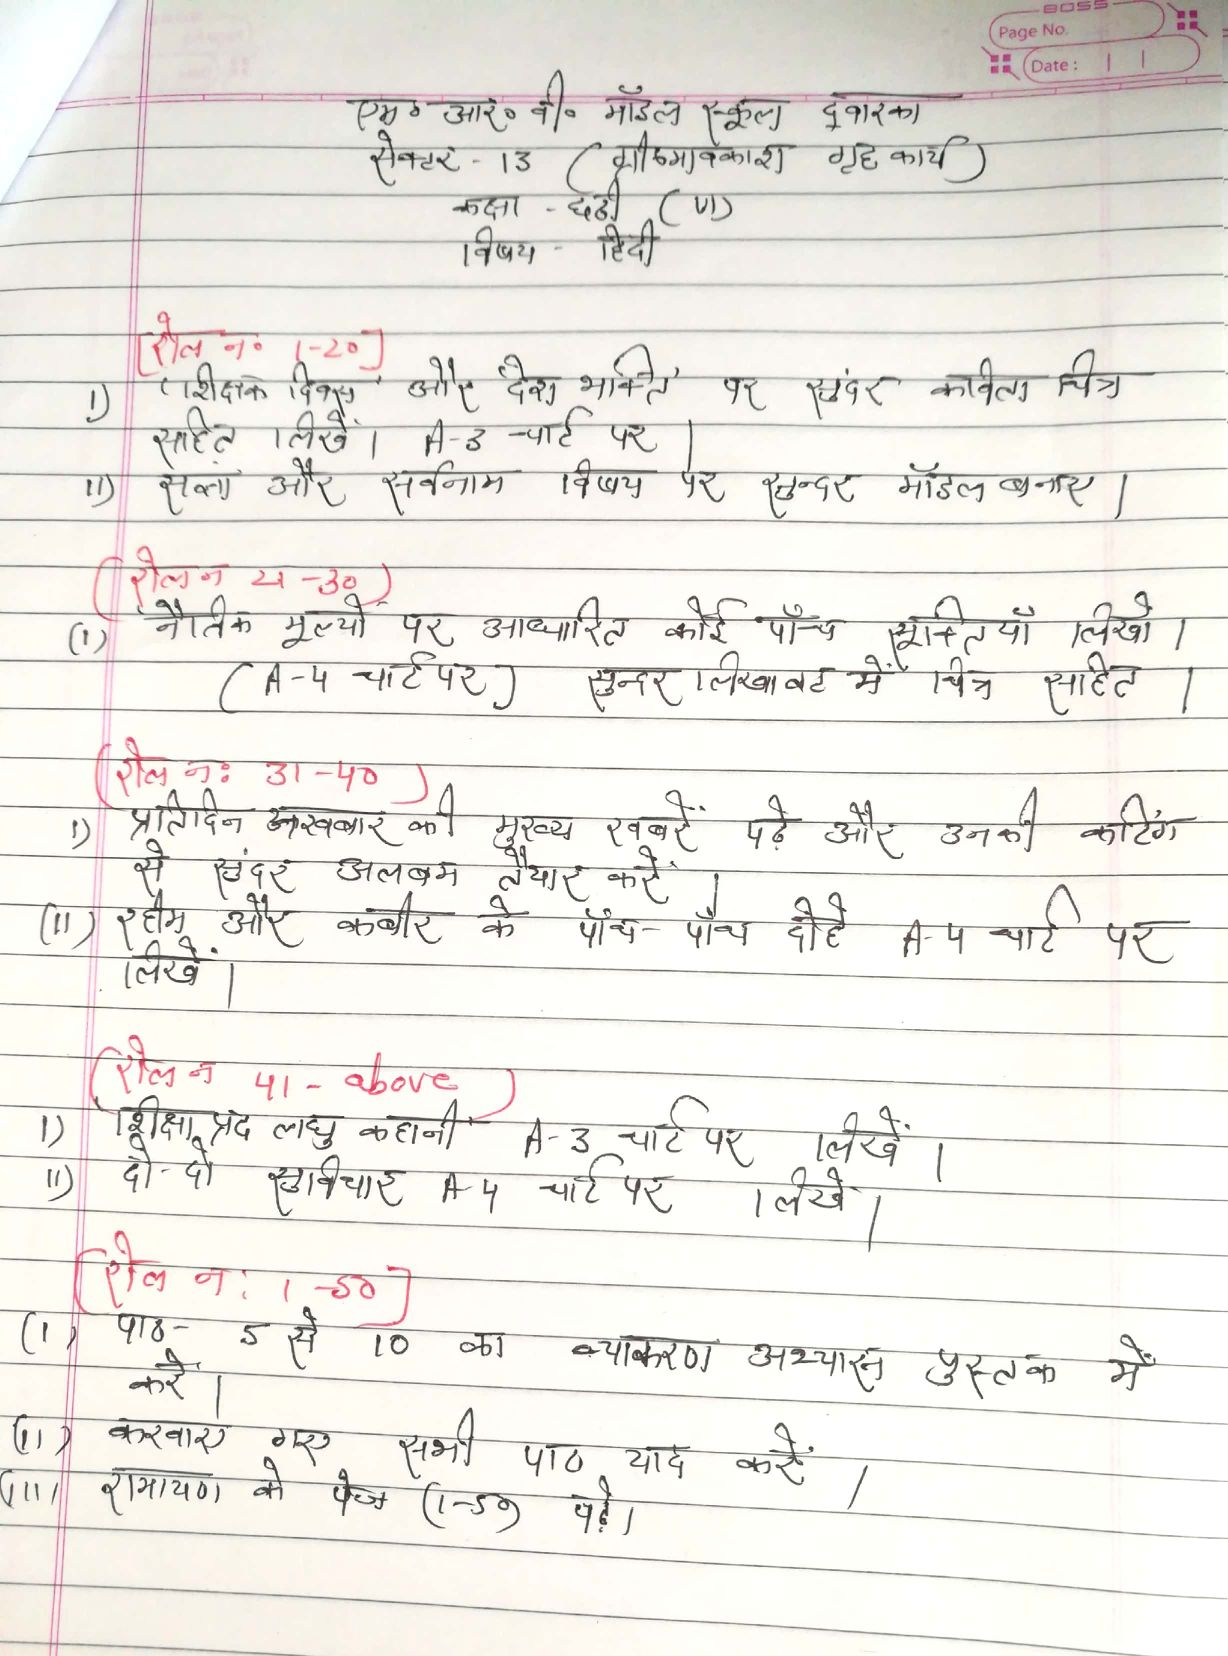 BOSS
Page No.
Date :
एम॰ आर॰ वी॰ मॉडल स्कूल द्वारका
सेक्टर - 13 (ग्रीष्मावकाश गृहकार्य)
कक्षा - छठी (VI)
विषय - हिंदी
[रोल न॰ 1-20]
I) 'शिक्षक दिवस' और 'देश भक्ति' पर सुंदर कविता चित्र
सहित लिखें। A-3 चार्ट पर।
II) संज्ञा और सर्वनाम विषय पर सुन्दर मॉडल बनाए।
(रोल न 21-30)
(I) नैतिक मूल्यों पर आधारित कोई पाँच सूक्तियाँ लिखो।
(A-4 चार्ट पर) सुन्दर लिखावट में चित्र सहित।
(रोल नः 31-40)
I) प्रतिदिन अखबार की मुख्य खबरें पढ़े और उनकी कटिंग
से सुंदर अलबम तैयार करें।
(II) रहीम और कबीर के पाँच-पाँच दोहे A-4 चार्ट पर
लिखें।
(रोल न 41- above)
I) शिक्षाप्रद लघु कहानी A-3 चार्ट पर लिखें।
II) दो-दो सुविचार A-4 चार्ट पर लिखें।
[रोल न: 1-50]
(I) पाठ- 5 से 10 का व्याकरण अभ्यास पुस्तक में
करें।
(II) करवाए गए सभी पाठ याद करें।
(III) रामायण के पेज (1-50) पढ़े।